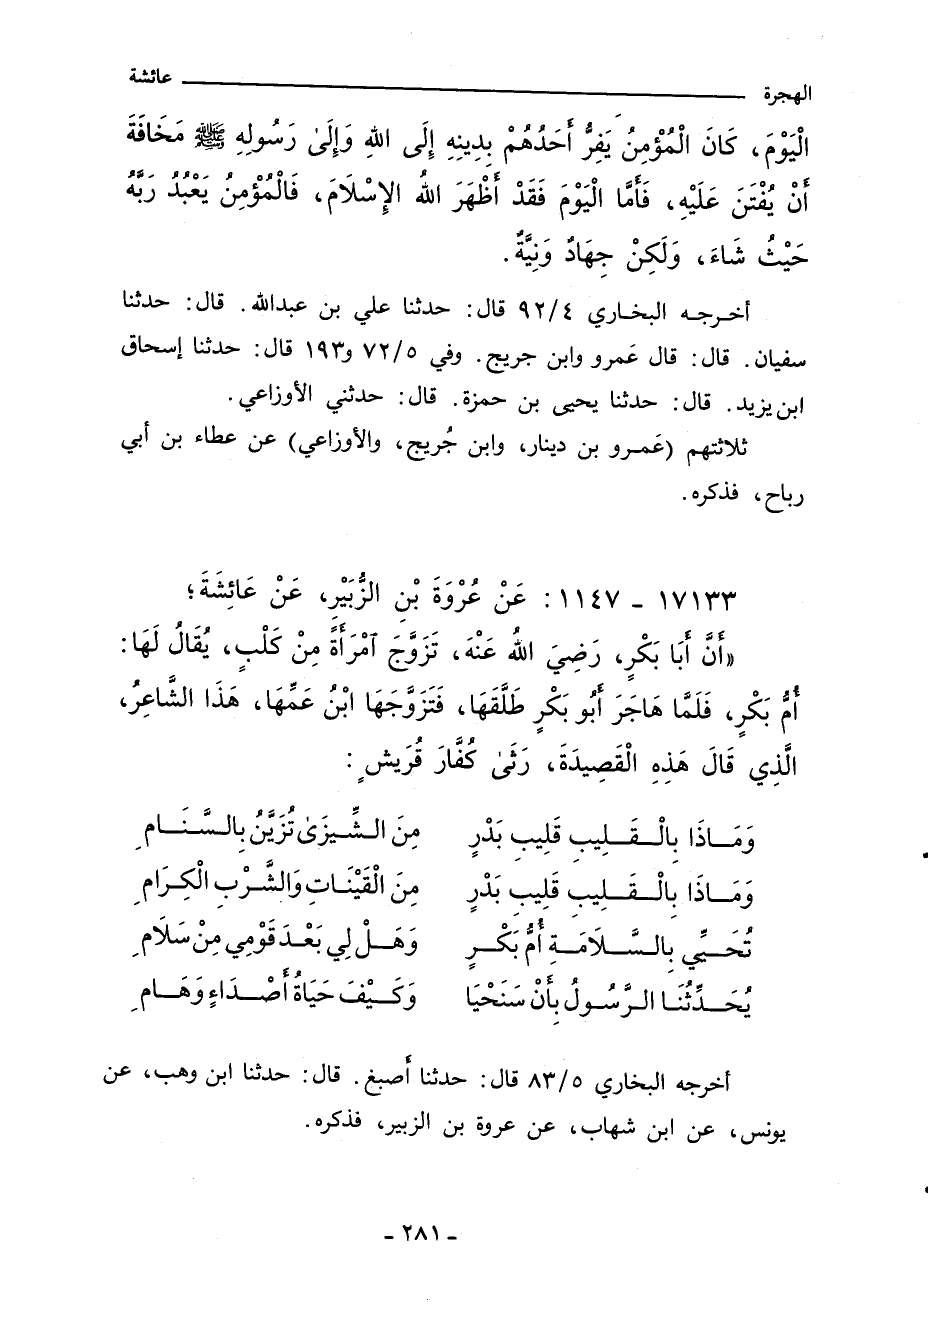 الهجرة ـــــــــــــــــــــــــ عائشة
الْيَوْمَ، كَانَ الْمُؤْمِنُ يَفِرُّ أَحَدُهُمْ بِدِينِهِ إِلَى اللهِ وَإِلَىٰ رَسُولِهِ ﷺ مَخَافَةَ
أَنْ يُفْتَنَ عَلَيْهِ، فَأَمَّا الْيَوْمَ فَقَدْ أَظْهَرَ اللهُ الإِسْلَامَ، فَالْمُؤْمِنُ يَعْبُدُ رَبَّهُ
حَيْثُ شَاءَ، وَلَكِنْ جِهَادٌ وَنِيَّةٌ.
أخرجه البخاري ٩٢/٤ قال: حدثنا علي بن عبدالله. قال: حدثنا
سفيان. قال: قال عَمرو وابن جريج. وفي ٧٢/٥ و١٩٣ قال: حدثنا إسحاق
ابن يزيد. قال: حدثنا يحيى بن حمزة. قال: حدثني الأوزاعي.
ثلاثتهم (عَمرو بن دينار، وابن جُريج، والأوزاعي) عن عطاء بن أبي
رباح، فذكره.
١٧١٣٣ - ١١٤٧: عَنْ عُرْوَةَ بْنِ الزُّبَيْرِ، عَنْ عَائِشَةَ؛
«أَنَّ أَبَا بَكْرٍ، رَضِيَ اللهُ عَنْهُ، تَزَوَّجَ ٱمْرَأَةً مِنْ كَلْبٍ، يُقَالُ لَهَا:
أُمُّ بَكْرٍ، فَلَمَّا هَاجَرَ أَبُو بَكْرٍ طَلَّقَهَا، فَتَزَوَّجَهَا ابْنُ عَمِّهَا، هَذَا الشَّاعِرُ،
الَّذِي قَالَ هَذِهِ الْقَصِيدَةَ، رَثَىٰ كُفَّارَ قُرَيْشٍ:
وَمَاذَا بِالْقَلِيبِ قَلِيبِ بَدْرٍ مِنَ الشِّيزَىٰ تُزَيَّنُ بِالسَّنَامِ
وَمَاذَا بِالْقَلِيبِ قَلِيبِ بَدْرٍ مِنَ الْقَيْنَاتِ وَالشَّرْبِ الْكِرَامِ
تُحَيِّي بِالسَّلَامَةِ أُمُّ بَكْرٍ وَهَلْ لِي بَعْدَ قَوْمِي مِنْ سَلَامِ
يُحَدِّثُنَا الرَّسُولُ بِأَنْ سَنَحْيَا وَكَيْفَ حَيَاةُ أَصْدَاءٍ وَهَامِ
أخرجه البخاري ٨٣/٥ قال: حدثنا أصبغ. قال: حدثنا ابن وهب، عن
يونس، عن ابن شهاب، عن عروة بن الزبير، فذكره.
- ٢٨١ -